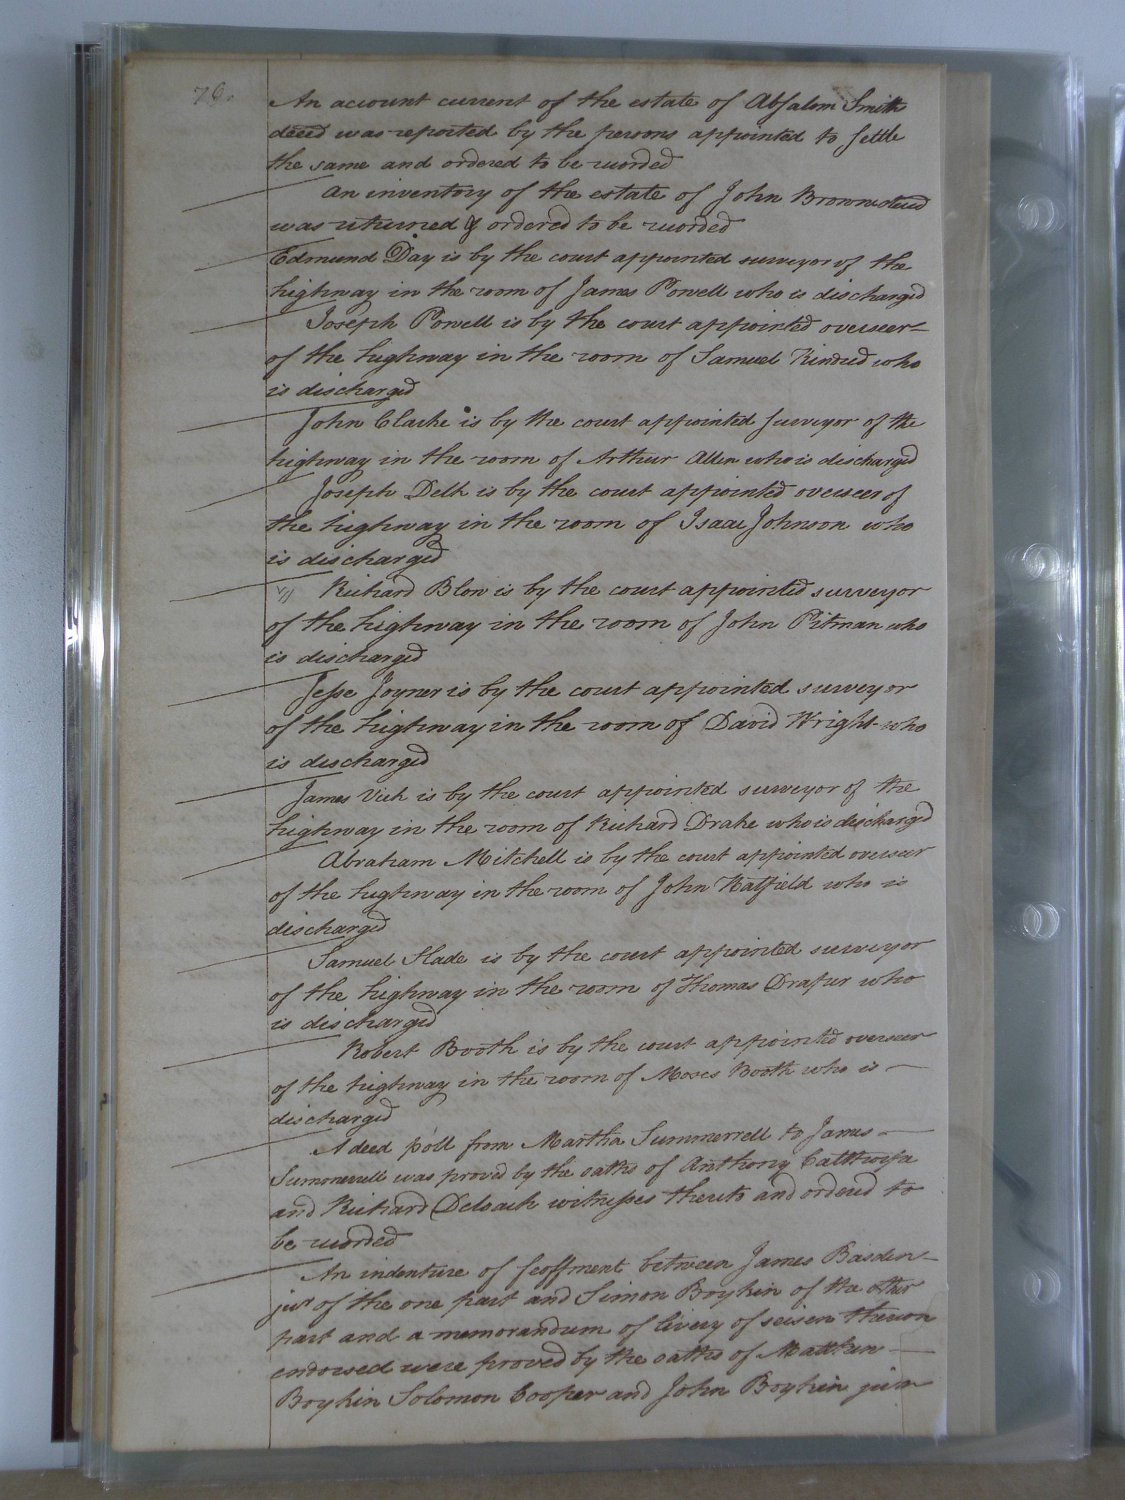 79.
An account current of the estate of Absalom Smith
deced was reported by the persons appointed to settle
the same and ordered to be recorded
An inventory of the estate of John Brown deced
was returned & ordered to be recorded
Edmund Day is by the court appointed surveyor of the
highway in the room of James Powell who is discharged
Joseph Powell is by the court appointed overseer
of the highway in the room of Samuel Kindred who
is discharged
John Clarke is by the court appointed surveyor of the
highway in the room of Arthur Allen who is discharged
Joseph Delk is by the court appointed overseer of
the highway in the room of Isaac Johnson who
is discharged
Richard Blow is by the court appointed surveyor
of the highway in the room of John Pitman who
is discharged
Jesse Joyner is by the court appointed surveyor
of the highway in the room of David Wright who
is discharged
James Vick is by the court appointed surveyor of the
highway in the room of Richard Drake who is discharged
Abraham Mitchell is by the court appointed overseer
of the highway in the room of John Hatfield who is
discharged
Samuel Slade is by the court appointed surveyor
of the highway in the room of Thomas Draper who
is discharged
Robert Booth is by the court appointed overseer
of the highway in the room of Moses Booth who is
discharged
A deed poll from Martha Summerrell to James
Summerrell was proved by the oaths of Anthony Calthorpe
and Richard Deloach witnesses thereto and ordered to
be recorded
An indenture of feoffment between James Basden
junr of the one part and Simon Boykin of the other
part and a memorandum of livery of seisen thereon
endorsed were proved by the oaths of Matthew
Boykin Solomon Cooper and John Boykin junr